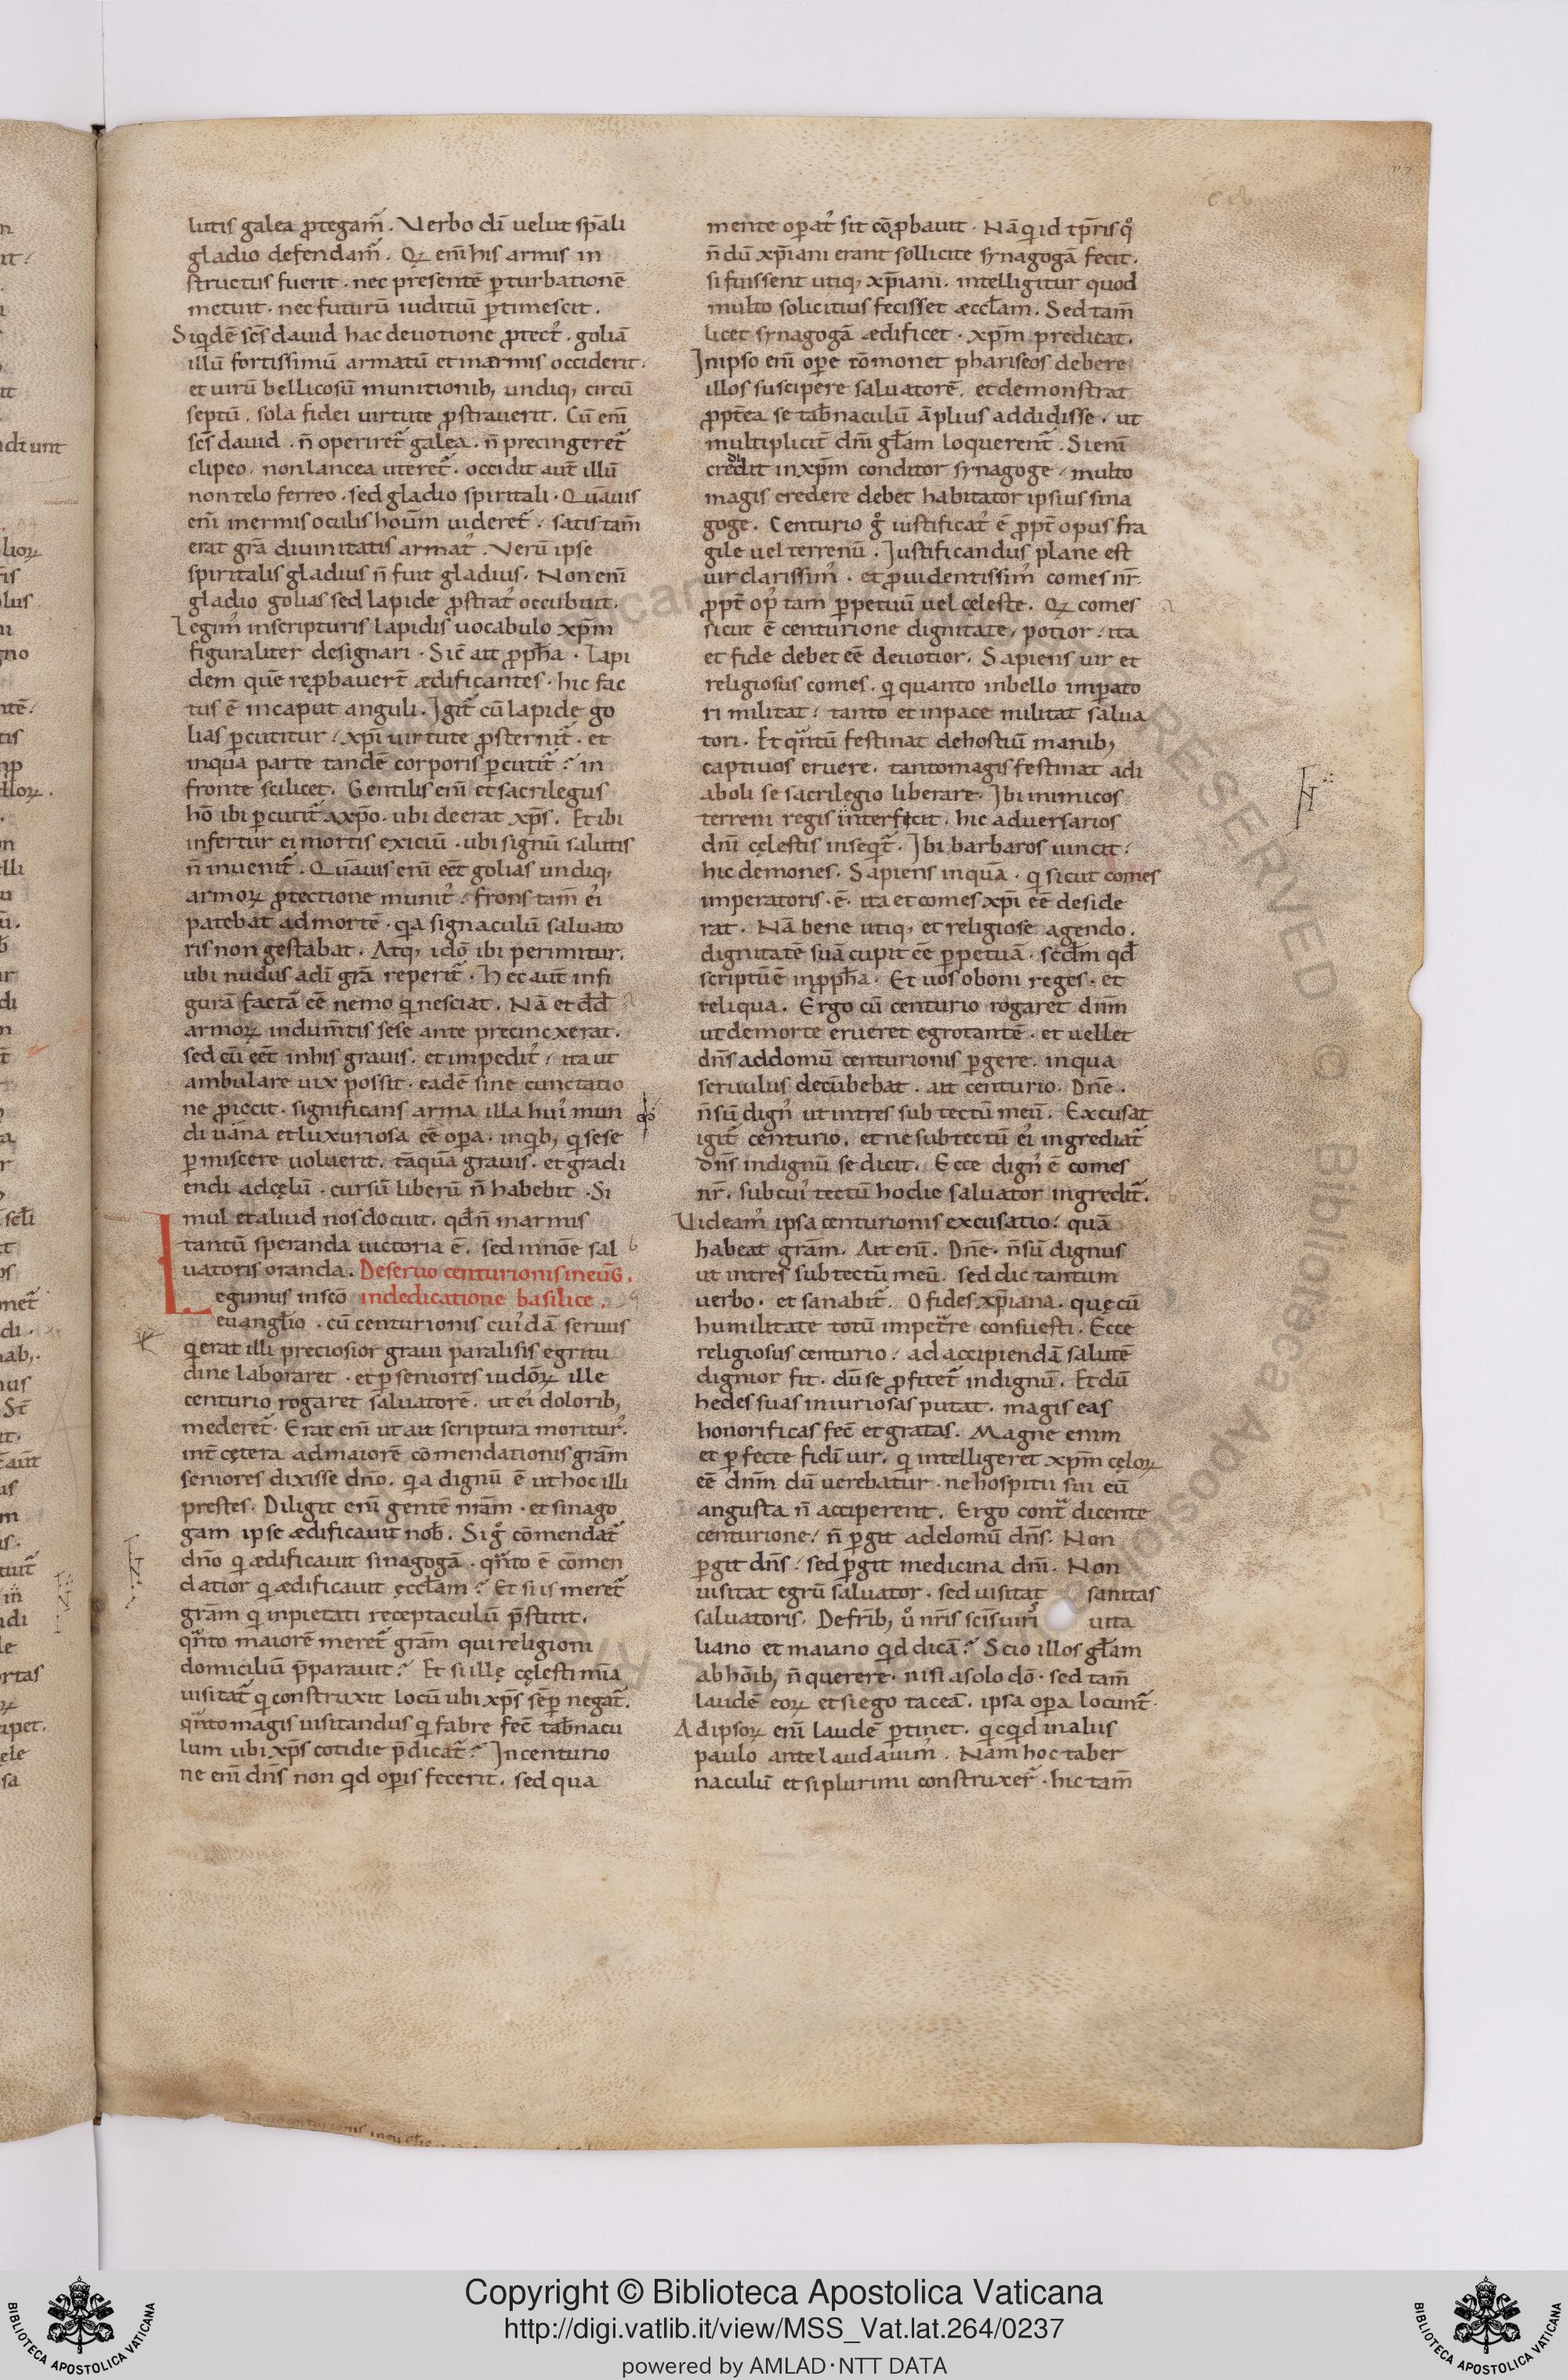 lutis galea ꝓtegam̃. Verbo dī uelut sp̄ali
gladio defendam̃. Qꝫ em̄ his armis in
structus fuerit. nec presentē ꝑturbationē
metuit. nec futurū iuditiū ꝑtimescit.
Siqdē scs̄ dauid hac deuotione ꝓtect᾽. goliā
illū fortissimū armatū et inarmis occiderit.
et uirū bellicosū munitionib; undiq; circū
septū. sola fidei uirtute ꝓstrauerit. Cū em̄
scs̄ dauid. n̄ operiret᷑ galea. n̄ precingeret᷑
clipeo. non lancea uteret᷑. occidit aut̄ illū
non telo ferreo. sed gladio spiritali. Quāuis
em̄ inermis oculis houm̄ uideret᷑. satis tam̄
erat grā diuinitatis armat᾽. Verū ipse
spiritalis gladius n̄ fuit gladius. Non em̄
gladio golias sed lapide ꝓstrat᾽ occubuit.
Legim᾽ inscripturis lapidis uocabulo xp̄m
figuraliter designari. Sic̄ ait ꝓph̄a. Lapi
dem quē reꝓbauert̄ ædificantes. hic fac
tus ē incaput anguli. Igit᷑ cū lapide go
lias ꝑcutitur. xp̄i uirtute ꝓsternit᷑. et
inqua parte tandē corporis ꝑcutit᷑? in
fronte scilicet. Gentilis em̄ et sacrilegus
hō ibi ꝑcutit᷑ axp̄o. ubi deerat xp̄s. Et ibi
infertur ei mortis exiciū. ubi signū salutis
n̄ inuenit᷑. Quāuis em̄ eēt golias undiq;
armoꝝ ꝓtectione munit᾽. frons tam̄ ei᾽
patebat admortē. qa signaculū saluato
ris non gestabat. Atq; idō ibi perimitur.
ubi nudus adī grā reperit᷑. Hec aut̄ infi
gurā factā eē nemo qi nesciat. Nā et dd̄
armoꝝ indum̄tis sese ante precincxerat.
sed cū eēt inhis grauis. et impedit᾽. ita ut
ambulare uix possit. eadē sine cunctatio
ne ꝓiecit. significans arma illa hui᾽ mun
di uāna et luxuriosa eē oꝑa. inqib; qi sese
ꝑmiscere uoluerit. tāquā grauis. et gradi
endi adcęlū. cursū liberū n̄ habebit. Si
mul et aliud nos docuit. qd̄ n̄ inarmis
tantū speranda uictoria ē. sed innōe sal
uatoris oranda. De seruo centurionis ineūG.
Legimus inscō indedicatione basilice.
euangl̄io. cū centurionis cui᾽dā seruus
qi erat illi preciosior graui paralisis egritu
dine laboraret. et ꝑ seniores iudōꝝ ille
centurio rogaret saluatorē. ut ei᾽ dolorib;
mederet᷑. Erat em̄ ut ait scriptura moritur᾽.
int̄ cętera admaiorē cōmendationis grām
seniores dixisse dn̄o. qa dignū ē ut hoc illi
prestes. Diligit em̄ gentē nrām. et sinago
gam ipse ædificauit nob̄. Si gͦ cōmendat᷑
dn̄o qi ædificauit sinagogā. qͣnto ē cōmen
datior qi ædificauit ęccl̄am? Et si is meret᷑
grām qi inpietati receptaculū p̄stitit.
qͣnto maiorē meret᷑ grām qui religioni
domiciliū p̄parauit? Et si ille cęlesti mīa
uisitat᷑ qi construxit locū ubi xp̄s sēꝑ negat᷑.
qͣnto magis uisitandus qi fabre fec̄ tab̄nacu
lum ubi xp̄s cotidie p̄dicat᷑? In centurio
ne em̄ dn̄s non qid oꝑis fecerit. sed qua
mente oꝑat᾽ sit cōꝓbauit. Nā qid tp̄ris qͦ
n̄dū xp̄iani erant sollicite synagogā fecit.
si fuissent utiq; xp̄iani. intelligitur quod
multo solicitius fecisset æccl̄am. Sed tam̄
licet synagogā ædificet. xp̄m predicat.
In ipso em̄ oꝑe cōmonet phariseos debere
illos suscipere saluatorē. et demonstrat
ꝓpt̄ea se tab̄naculū āplius addidisse. ut
multiplicit̄ dn̄i gl̄am loquerent᷑. Si em̄
credidit inxp̄m conditor synagoge. multo
magis credere debet habitator ipsius sina
goge. Centurio gͦ iustificat᾽ ē ꝓpt̄ opus fra
gile uel terrenū. Iustificandus plane est
uir clarissim᾽. et ꝓuidentissim᾽ comes nr̄.
ꝓpt̄ op᾽ tam ꝑpetuū uel cęleste. Qꝫ comes
sicut ē centurione dignitate, potior. ita
et fide debet eē deuotior. Sapiens uir et
religiosus comes. qi quanto inbello imꝑato
ri militat. tanto et inpace militat salua
tori. Et qͣntū festinat dehostiū manib;
captiuos eruere. tanto magis festinat adi
aboli se sacrilegio liberare. Ibi inimicos
terreni regis interfecit. hic aduersarios
dn̄i cęlestis inseqit᷑. Ibi barbaros uincit.
hic demones. Sapiens inquā. qi sicut comes
imperatoris. ē. ita et comes xp̄i eē deside
rat. Nā bene utiq; et religiose agendo.
dignitatē suā cupit eē ꝑpetuā. scdm̄ qd̄
scriptū ē inꝓph̄a. Et uos o boni reges. et
reliqua. Ergo cū centurio rogaret dnm̄
ut demorte erueret egrotantē. et uellet
dn̄s addomū centurionis ꝑgere. inqua
seruulus decūbebat. ait centurio. Dn̄e.
n̄ sū dign᾽ ut intres sub tectū meū. Excusat
igit᷑ centurio. et ne sub tectū ei᾽ ingrediat᷑
dn̄s indignū se dicit. Ecce dign᾽ ē comes
nr̄. sub cui᾽ tectū hodie saluator ingredit᷑.
Uideam᾽ ipsa centurionis excusatio. quā
habeat grām. Ait em̄. Dn̄e. n̄ sū dignus
ut intres sub tectū meū. sed dic tantum
uerbo. et sanabit᷑. O fides xp̄iana. quę cū
humilitate totū impetͣre consuesti. Ecce
religiosus centurio. ad accipiendā salutē
dignior fit. dū se ꝓfitet᷑ indignū. Et dū
hedes suas iniuriosas putat. magis eas
honorificas fec̄ et gratas. Magne enim
et ꝑfecte fidī uir. qi intelligeret xp̄m cęloꝝ
eē dnm̄ dū uerebatur. ne hospitii sui eū
angusta n̄ acciperent. Ergo contͣ dicente
centurione. n̄ ꝑgit addomū dn̄s. Non
ꝑgit dn̄s. sed ꝑgit medicina dn̄i. Non
uisitat egrū saluator. sed uisitat sanitas
saluatoris. De fr̄ib; uͦ nr̄is scīs uiri uita
liano et maiano qid dicā? Scio illos gl̄am
ab hōib; n̄ querere. nisi a solo dō. sed tam̄
laudē eoꝝ et si ego taceā. ipsa oꝑa locunt᷑.
Ad ipsoꝝ em̄ laudē ꝑtinet. qicqid in aliis
paulo ante laudauim᾽. Nam hoc taber
naculū et si plurimi construxer᷑. hic tam̄
Copyright © Biblioteca Apostolica Vaticana
http://digi.vatlib.it/view/MSS_Vat.lat.264/0237
powered by AMLAD·NTT DATA
BIBLIOTECA APOSTOLICA VATICANA
BIBLIOTECA APOSTOLICA VATICANA